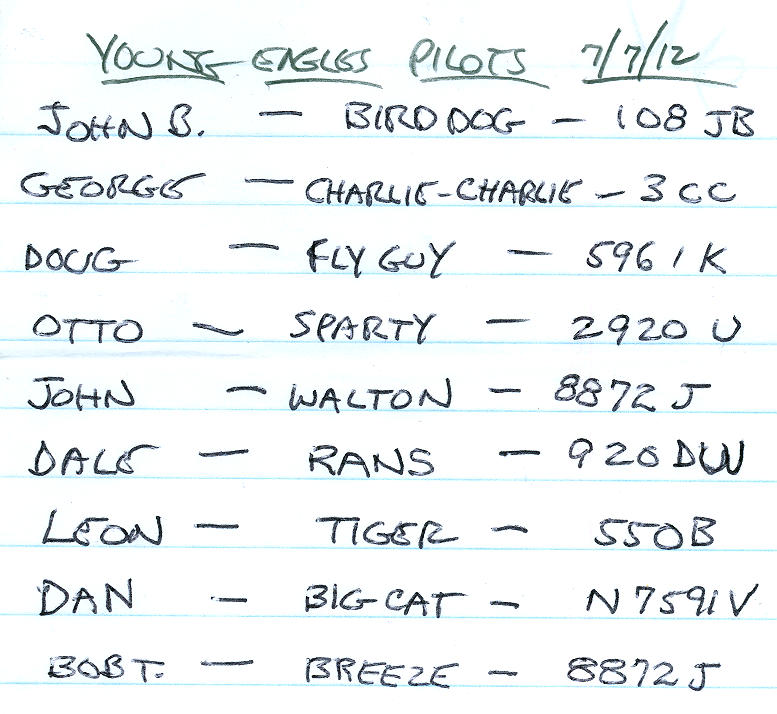 YOUNG EAGLES PILOTS 7/7/12
JOHN B. — BIRD DOG — 108 JB
GEORGE — CHARLIE-CHARLIE — 3 CC
DOUG — FLY GUY — 5961K
OTTO ~ SPARTY — 2920 U
JOHN — WALTON — 8872 J
DALE — RANS — 920 DW
LEON — TIGER — 550B
DAN — BIG CAT — N 7591V
BOB T. — BREEZE — 8872J